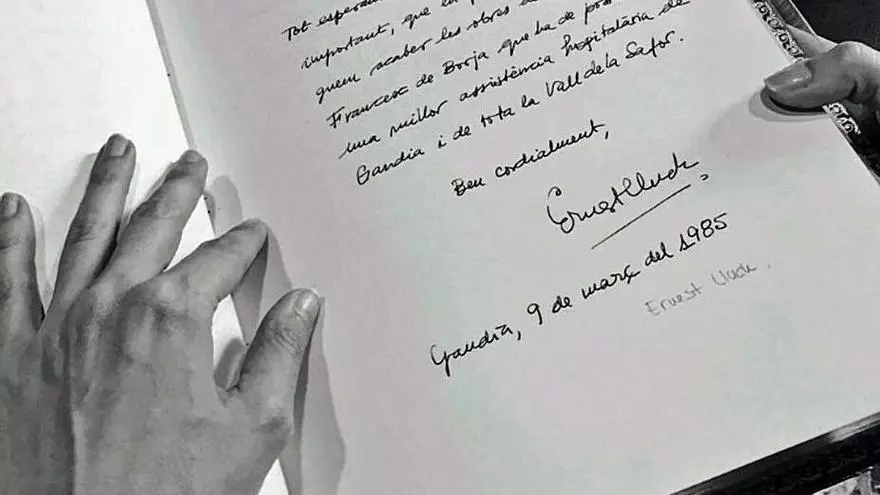 Tot esperant
important, que en
quem acaber les obres
Francesc de Borja que ha de
una millor assistència hospitalària de
Gandia i de tota la Vall de la Safor.
Ben cordialment,
Ernest Lluch
Gandia, 9 de març del 1985
Ernest Lluch.